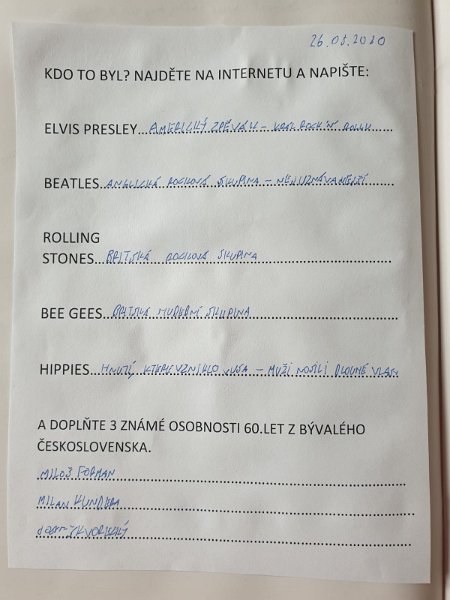 26.05.2020
KDO TO BYL? NAJDĚTE NA INTERNETU A NAPIŠTE:
ELVIS PRESLEY...AMERICKÝ ZPĚVÁK – KRÁL ROCK'N' ROLLU
BEATLES...ANGLICKÁ ROCKOVÁ SKUPINA – NEJUZNÁVANĚJŠÍ
ROLLING
STONES...BRITSKÁ ROCKOVÁ SKUPINA
BEE GEES...BRITSKÁ HUDEBNÍ SKUPINA
HIPPIES...HNUTÍ, KTERÉ VZNIKLO – MUŽI NOSILI DLOUHÉ VLASY
A DOPLŇTE 3 ZNÁMÉ OSOBNOSTI 60.LET Z BÝVALÉHO
ČESKOSLOVENSKA.
MILOŠ FORMAN
MILAN KUNDERA
ŠKVORECKÝ